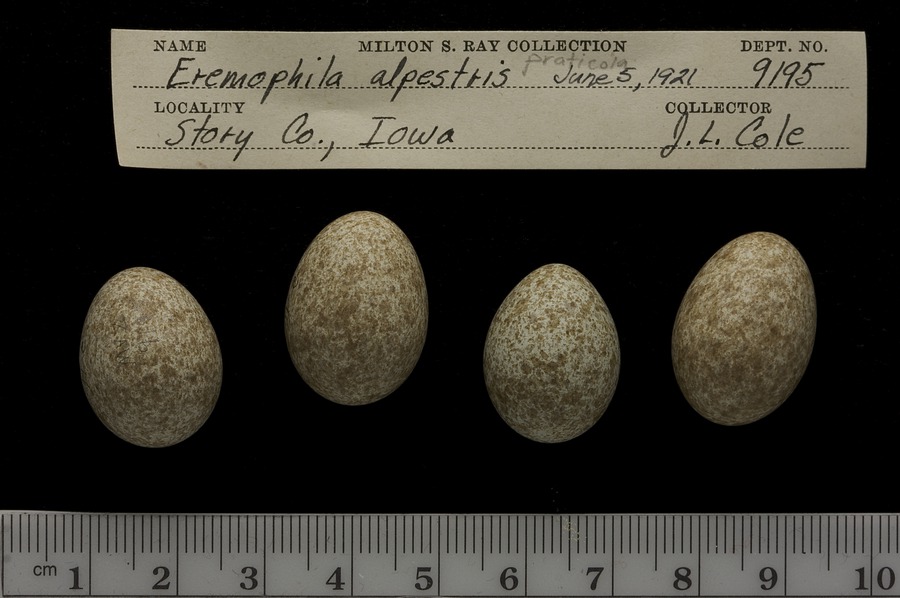 NAME MILTON S. RAY COLLECTION DEPT. NO.
praticola
Eremophila alpestris June 5, 1921 9195
LOCALITY COLLECTOR
Story Co., Iowa J. L. Cole
cm 1 2 3 4 5 6 7 8 9 10